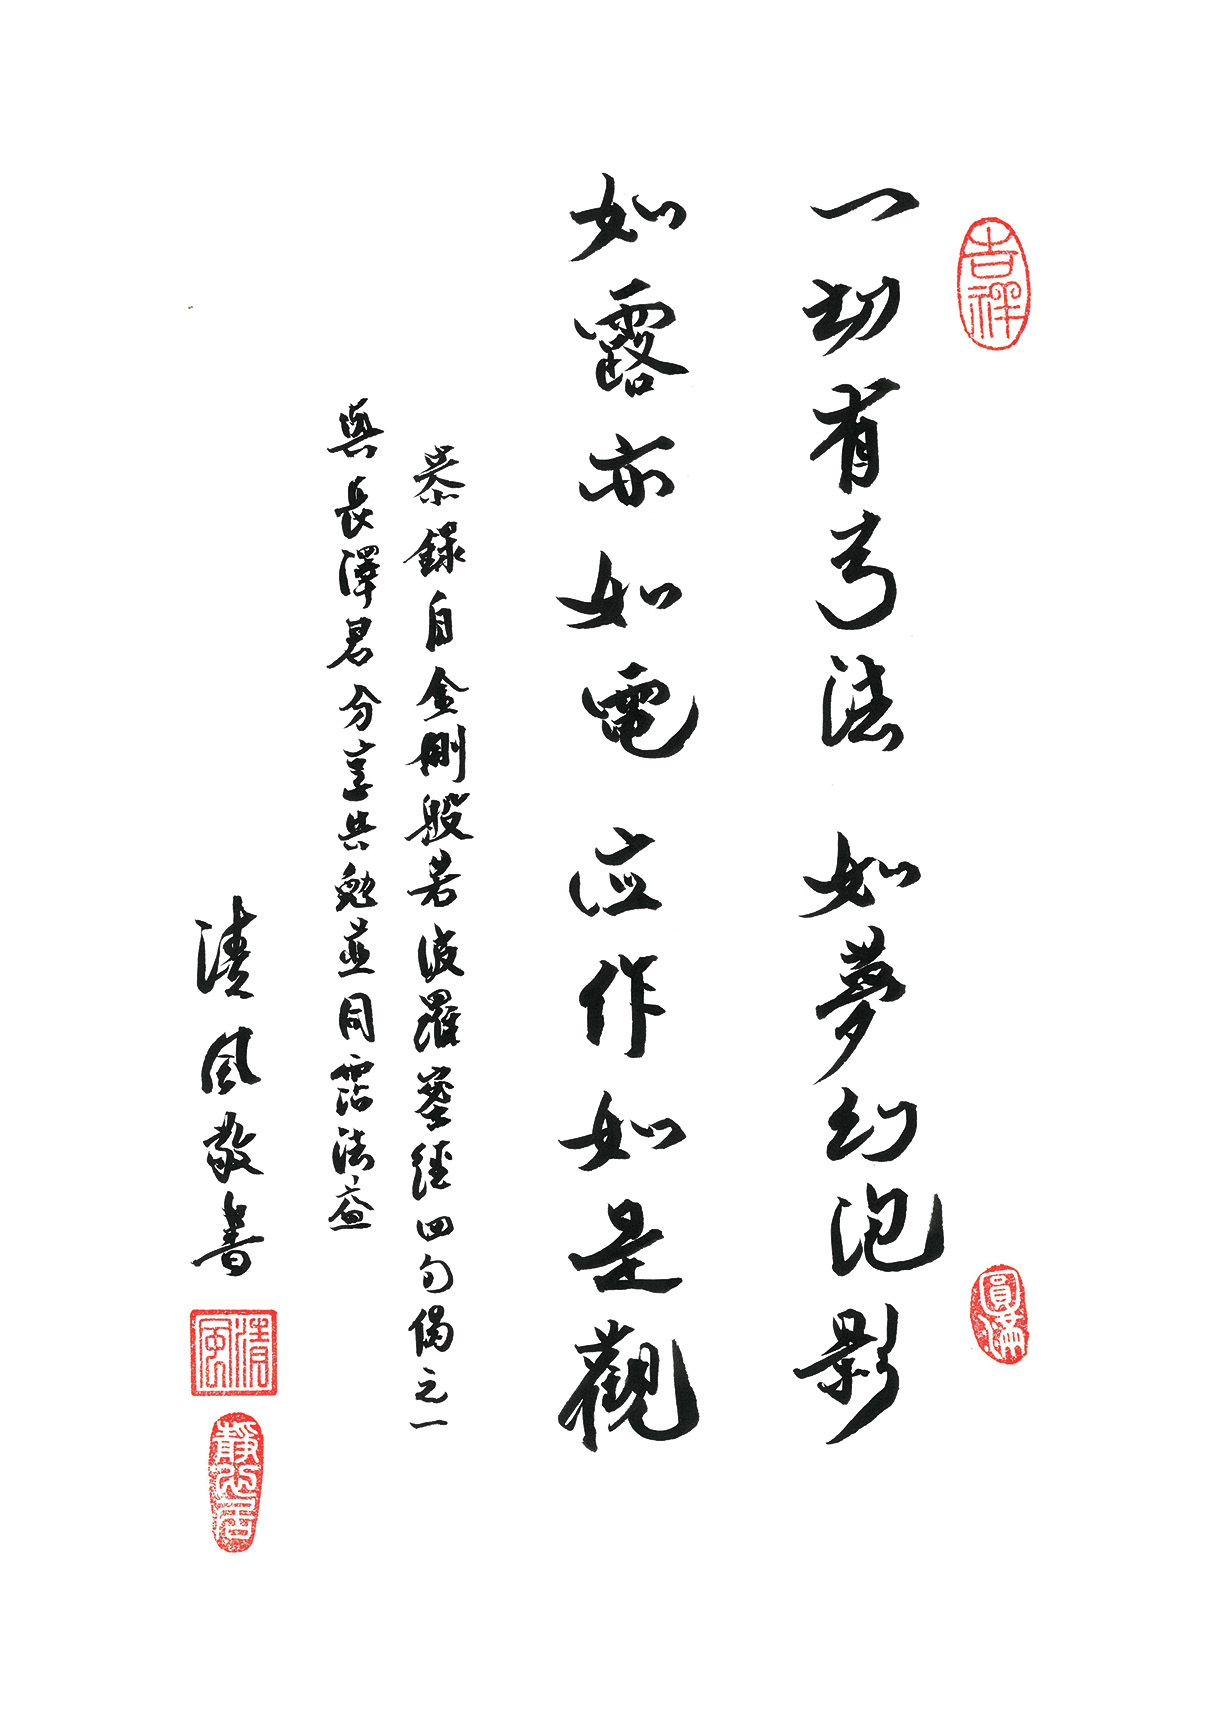 吉祥
一切有為法 如夢幻泡影
圓滿
如露亦如電 應作如是觀
恭錄自金剛般若波羅蜜經四句偈之一
與長澤君分享共勉並同霑法益
清風敬書
清風